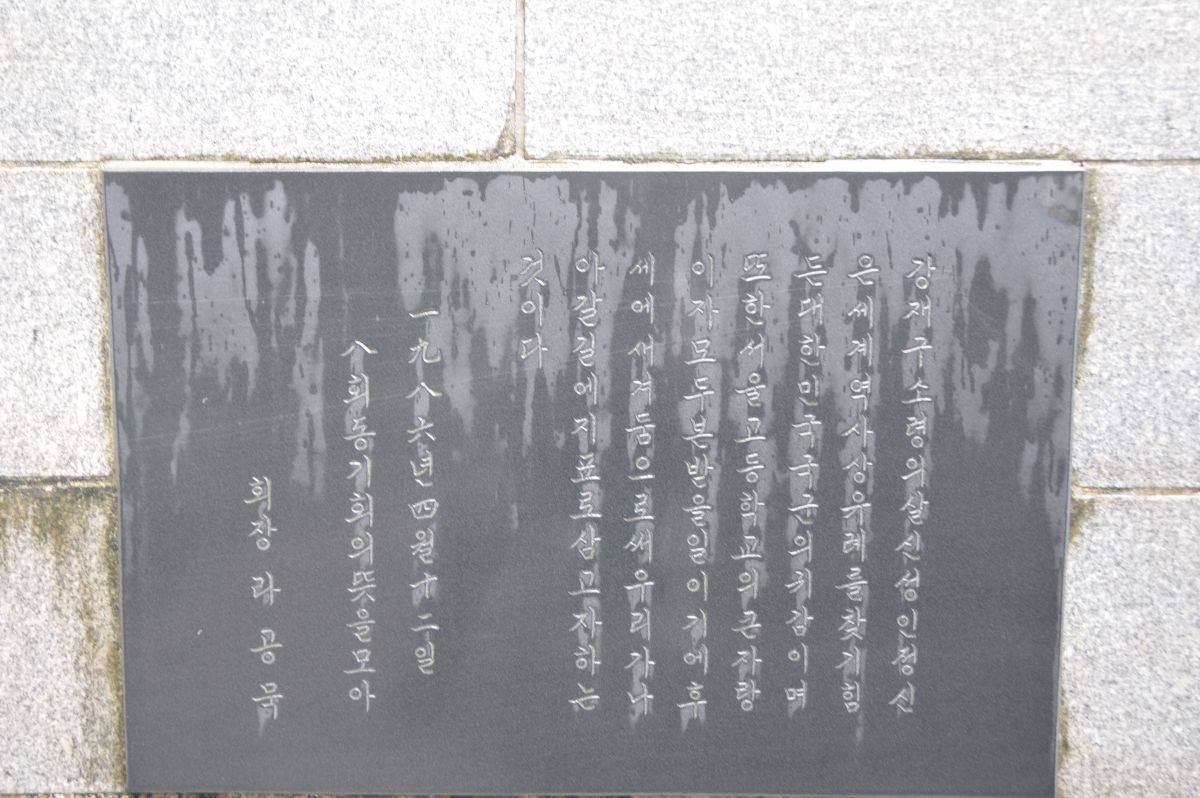 강재구소령의살신성인정신
은세계역사상유례를찾기힘
든대한민국국군의귀감이며
또한서울고등학교의큰자랑
이자모두본받을일이기에후
세에새겨둠으로써우리가나
아갈길에지표로삼고자하는
것이다
一九八六년四월十二일
八회동기회의뜻을모아
회장 라공묵